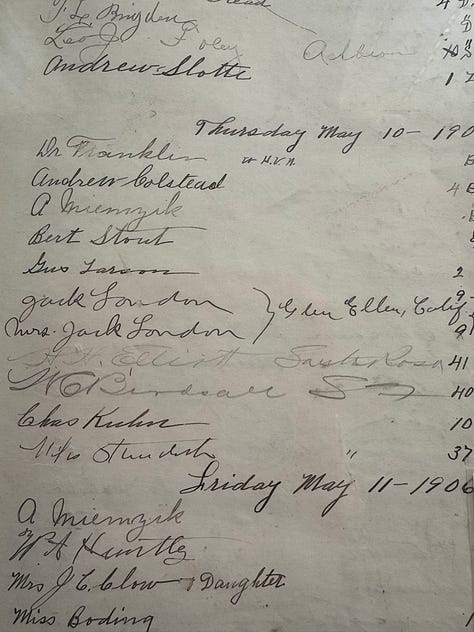 Leo J. Foley Albion
Andrew Slotte 1
Thursday May 10-190
Dr Franklin
Andrew Colstead 4
A Miemzik
Bert Stout
Gus Larson 2
Jack London
Glen Ellen, Calif 9
Mrs. Jack London 9
Elliott Santa Rosa 41
W C Birdsall S F 40
Chas Kuhn 10
" 37
Friday May 11-1906
A Miemzik
Mrs J. C. Clow & Daughter
Miss Boding